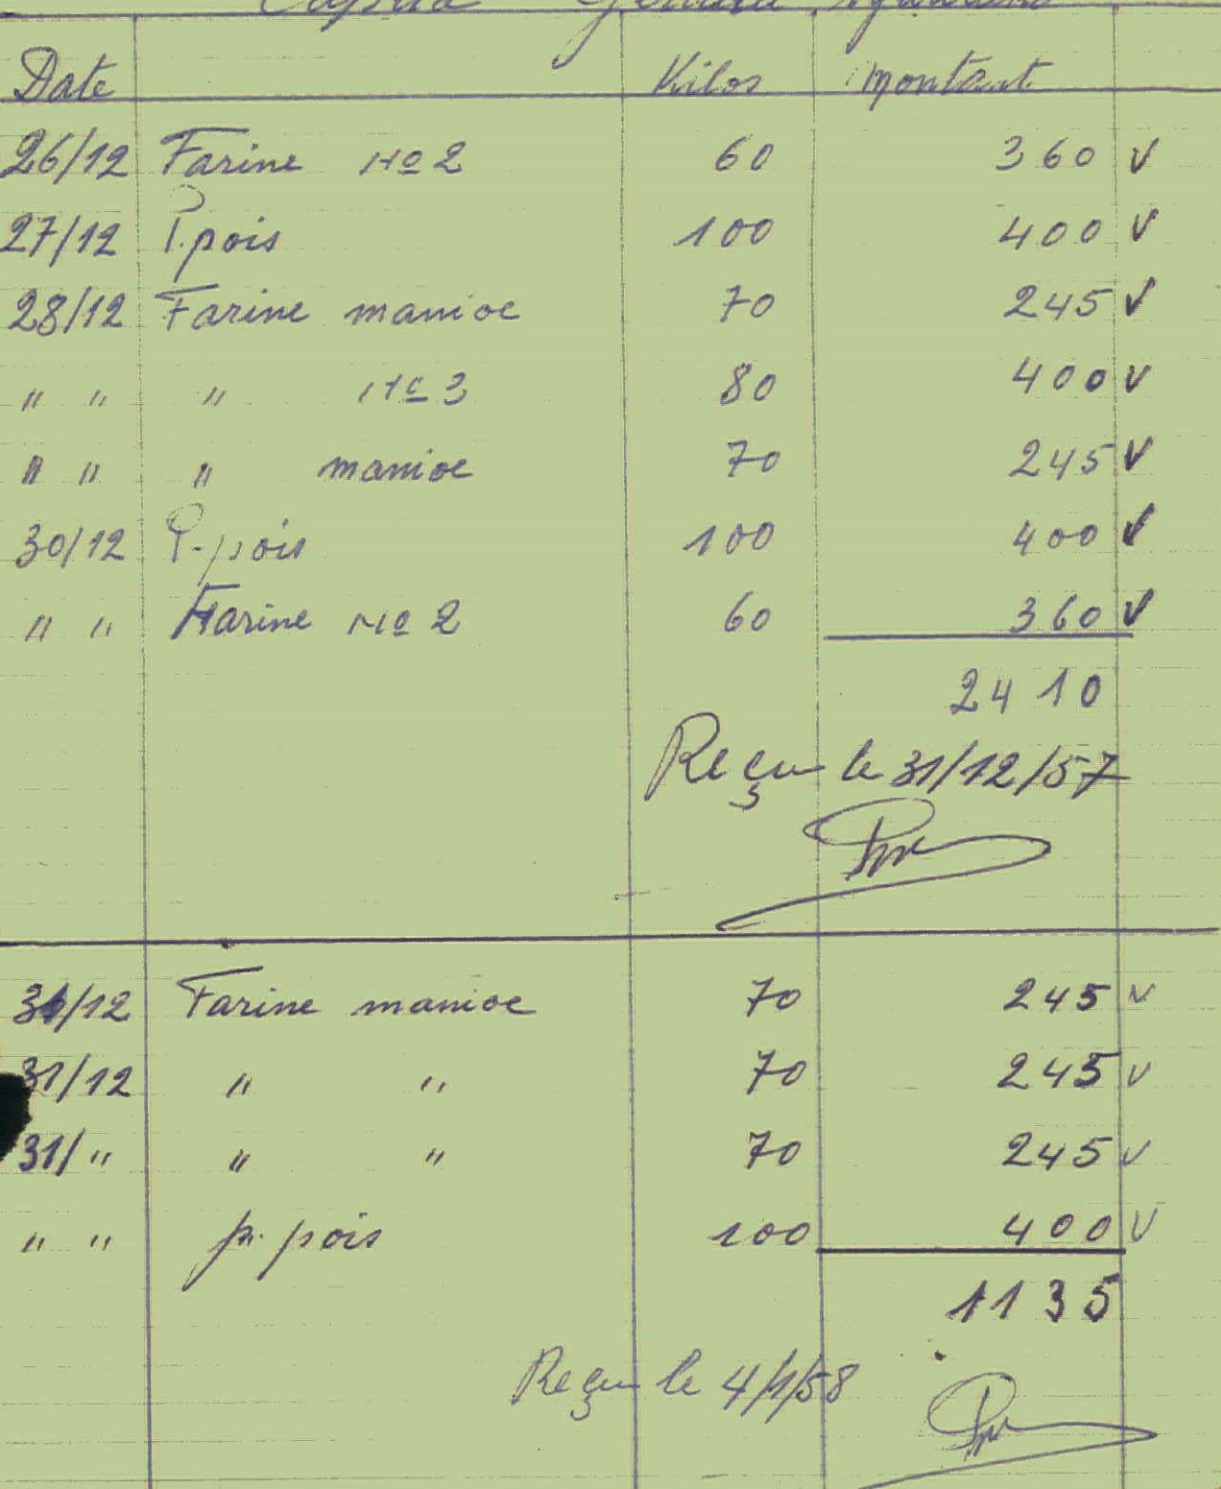 Date Kilos montant
26/12 Farine No 2 60 360 v
27/12 P.pois 100 400 v
28/12 Farine manioc 70 245 v
" " " No 3 80 400 v
" " " manioc 70 245 v
30/12 P-pois 100 400 v
" " Farine No 2 60 360 v
2410
Reçu le 31/12/57
31/12 Farine manioc 70 245 v
31/12 " " 70 245 v
31/" " " 70 245 v
" " p. pois 100 400 v
1135
Reçu le 4/1/58